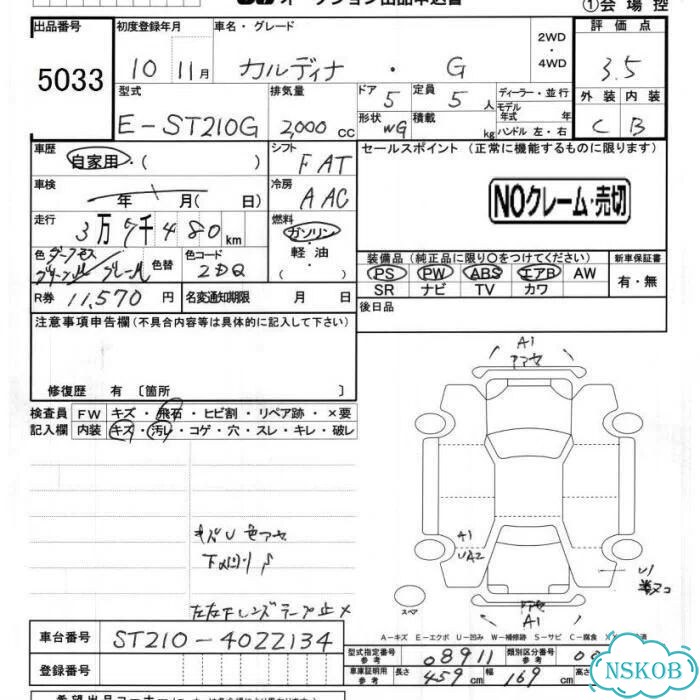 ①会場控
出品番号
5033
初度登録年月
10 11月
車名・グレード
カルディナ・G
2WD
・
4WD
評価点
3.5
型式
E-ST210G
排気量
2,000 cc
ドア
5
定員
5人
形状
WG
積載
kg
ディーラー・並行
モデル年式 年
ハンドル 左・右
外装 内装
C B
車歴
自家用・( )
シフト
FAT
車検
年 月( 日)
冷房
AAC
走行
3万7千480km
燃料
ガソリン・
軽油
( )
色
色替
色コード
2DQ
R券 11,570円
名変通知期限 月 日
セールスポイント(正常に機能するものに限ります)
NOクレーム・売切
装備品(純正品に限り〇をつけてください)
PS PW ABS エアB AW
SR ナビ TV カワ
新車保証書
有・無
後日品
注意事項申告欄(不具合内容等は具体的に記入して下さい)
修復歴 有〔箇所 〕
検査員記入欄
FW キズ・飛石・ヒビ割・リペア跡・×要
内装 キズ・汚レ・コゲ・穴・スレ・キレ・破レ
A1
A1
UA2
U1
スペア
A1
A-キズ E-エクボ U-凹み W-補修跡 S-サビ C-腐食
車台番号
ST210-4022134
登録番号
型式指定番号
参考
08911
類別区分番号
参考
車庫証明用
参考
長さ 459cm
幅 169cm
高さ
NSKOB